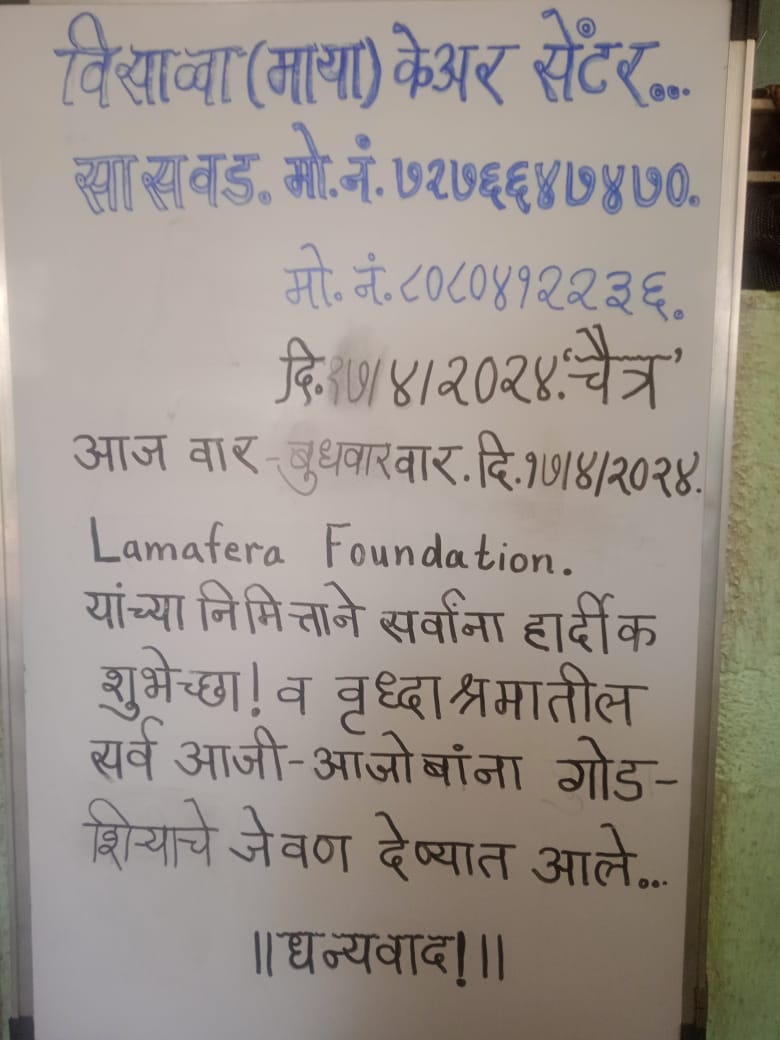 विसाव्वा (माया) केअर सेंटर...
सासवड. मो.नं. ७२७६६४७४७०.
मो. नं. ८०८०४१२२३६.
दि. १७/४/२०२४. ‘चैत्र’
आज वार - बुधवारवार. दि. १७/४/२०२४.
Lamafera Foundation.
यांच्या निमित्ताने सर्वांना हार्दीक
शुभेच्छा! व वृध्दाश्रमातील
सर्व आजी-आजोबांना गोड-
शिऱ्याचे जेवण देण्यात आले...
॥धन्यवाद!॥